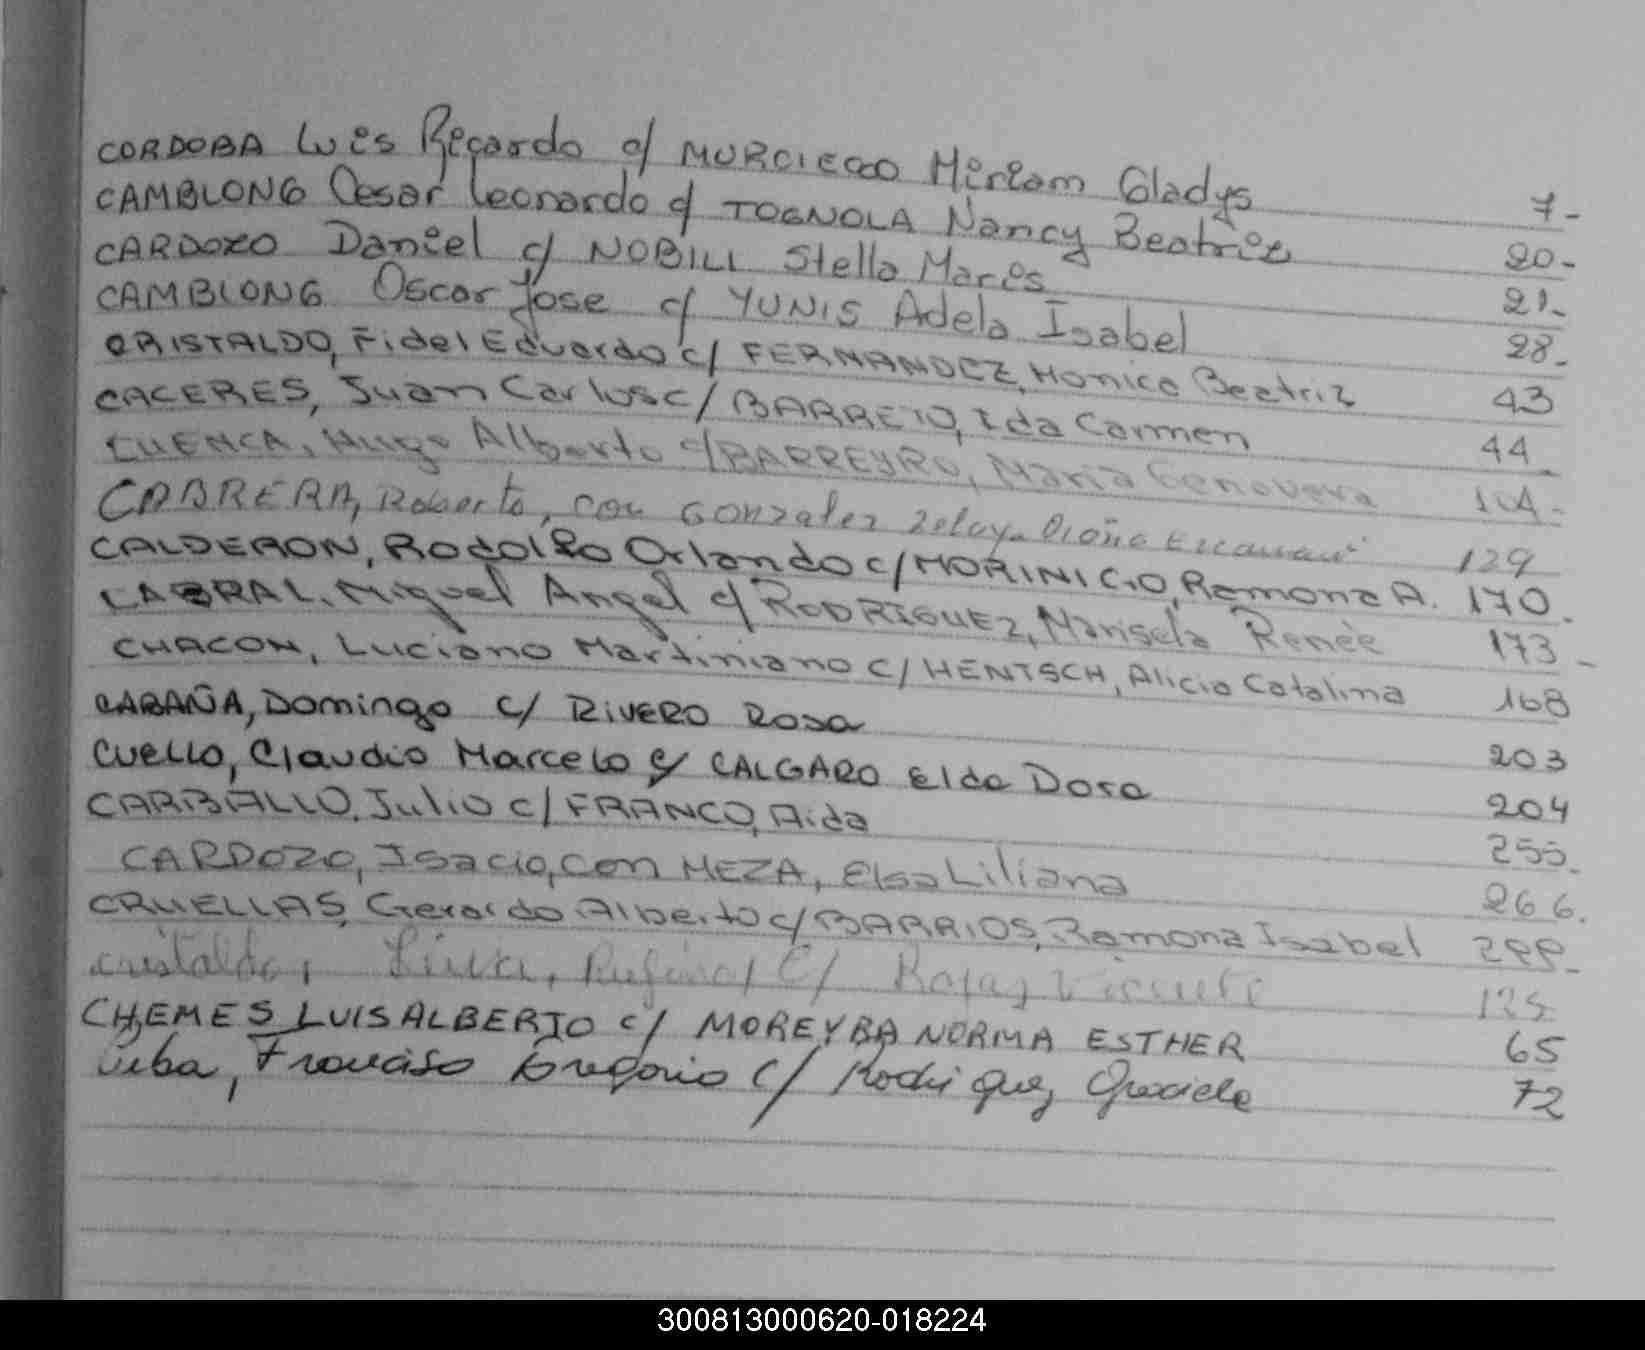 CORDOBA Luis Ricardo c/ MURCIEGO Miriam Gladys 7-
CAMBLONG Cesar Leonardo c/ TOGNOLA Nancy Beatriz 20-
CARDOZO Daniel c/ NOBILI Stella Maris 21-
CAMBLONG Oscar Jose c/ YUNIS Adela Isabel 28-
CRISTALDO, Fidel Eduardo c/ FERNANDEZ, Monica Beatriz 43
CACERES, Juan Carlos c/ BARRETO, Ida Carmen 44-
CUENCA, Hugo Alberto c/ BARREYRO, Maria Genoveva 104-
CABRERA, Roberto, con Gonzalez Zelay 129
CALDERON, Rodolfo Orlando c/ MORINIGO, Ramona A. 170.
CABRAL, Miguel Angel c/ RODRIGUEZ, Marisela Renée 173-
CHACON, Luciano Martiniano c/ HENTSCH, Alicia Catalina 168
CABAÑA, Domingo c/ RIVERO Rosa
CUELLO, Claudio Marcelo c/ CALGARO Elda Dora 203
CARBALLO, Julio c/ FRANCO, Aida 204
CARDOZO, Isacio, con MEZA, Elsa Liliana 255.
CRUELLAS, Gerardo Alberto c/ BARRIOS, Ramona Isabel 266.
cristaldo, c/ Rojas, Vicente
CHEMES LUIS ALBERTO c/ MOREYRA NORMA ESTHER 65
Cuba, Francisco Gregorio c/ Rodriguez, Graciela 72
300813000620-018224